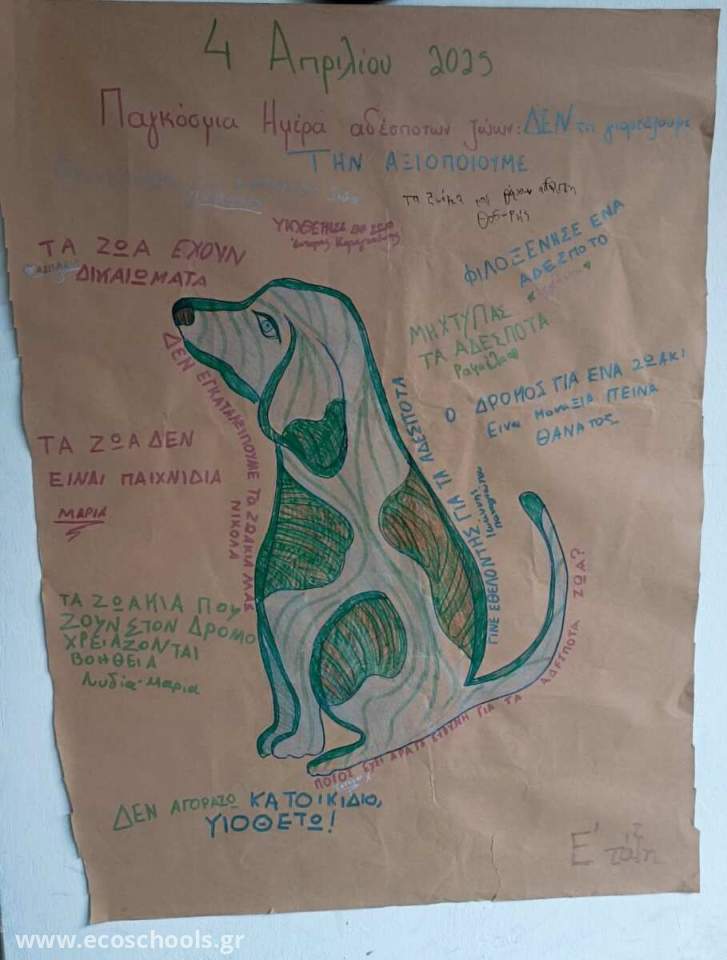 4 Απριλίου 2025
Παγκόσμια Ημέρα αδέσποτων ζώων: ΔΕΝ τη γιορτάζουμε
ΤΗΝ ΑΞΙΟΠΟΙΟΥΜΕ
ΤΑ ΖΩΑ ΕΧΟΥΝ
ΔΙΚΑΙΩΜΑΤΑ
ΦΙΛΟΞΕΝΗΣΕ ΕΝΑ
ΑΔΕΣΠΟΤΟ
ΜΗ ΧΤΥΠΑΣ
ΤΑ ΑΔΕΣΠΟΤΑ
Ραφαέλα
Ο ΔΡΟΜΟΣ ΓΙΑ ΕΝΑ ΖΩΑΚΙ
Είναι ΜΟΝΑΞΙΑ ΠΕΙΝΑ
ΘΑΝΑΤΟΣ
ΔΕΝ ΕΓΚΑΤΑΛΕΙΠΟΥΜΕ ΤΑ ΖΩΑΚΙΑ ΜΑΣ
ΝΙΚΟΛΑ
ΤΑ ΖΩΑ ΔΕΝ
ΕΙΝΑΙ ΠΑΙΧΝΙΔΙΑ
ΜΑΡΙΑ
ΓΙΝΕ ΕΘΕΛΟΝΤΗΣ ΓΙΑ ΤΑ ΑΔΕΣΠΟΤΑ
ΤΑ ΖΩΑΚΙΑ ΠΟΥ
ΖΟΥΝ ΣΤΟΝ ΔΡΟΜΟ
ΧΡΕΙΑΖΟΝΤΑΙ
ΒΟΗΘΕΙΑ
Λυδία-Μαρία
ΠΟΙΟΣ ΕΧΕΙ ΑΡΑΓΕ ΕΥΘΥΝΗ ΓΙΑ ΤΑ ΑΔΕΣΠΟΤΑ ΖΩΑ?
ΔΕΝ ΑΓΟΡΑΖΩ ΚΑΤΟΙΚΙΔΙΟ,
ΥΙΟΘΕΤΩ!
Ε' τάξη
www.ecoschools.gr